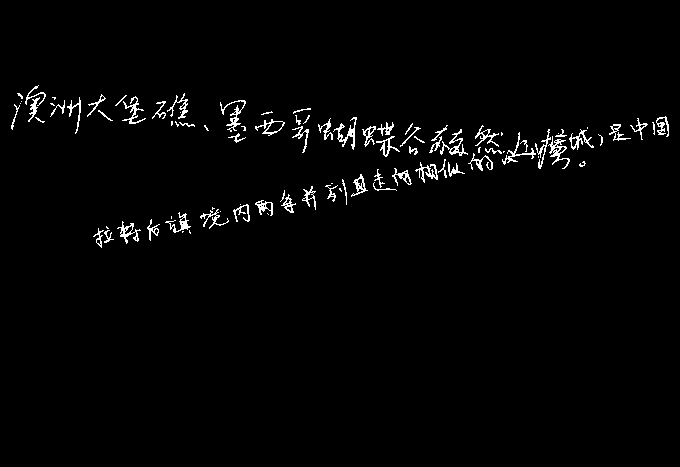 澳洲大堡礁、墨西哥蝴蝶谷 然 城,是中国
拉特后旗境内两条并列且走向相似的